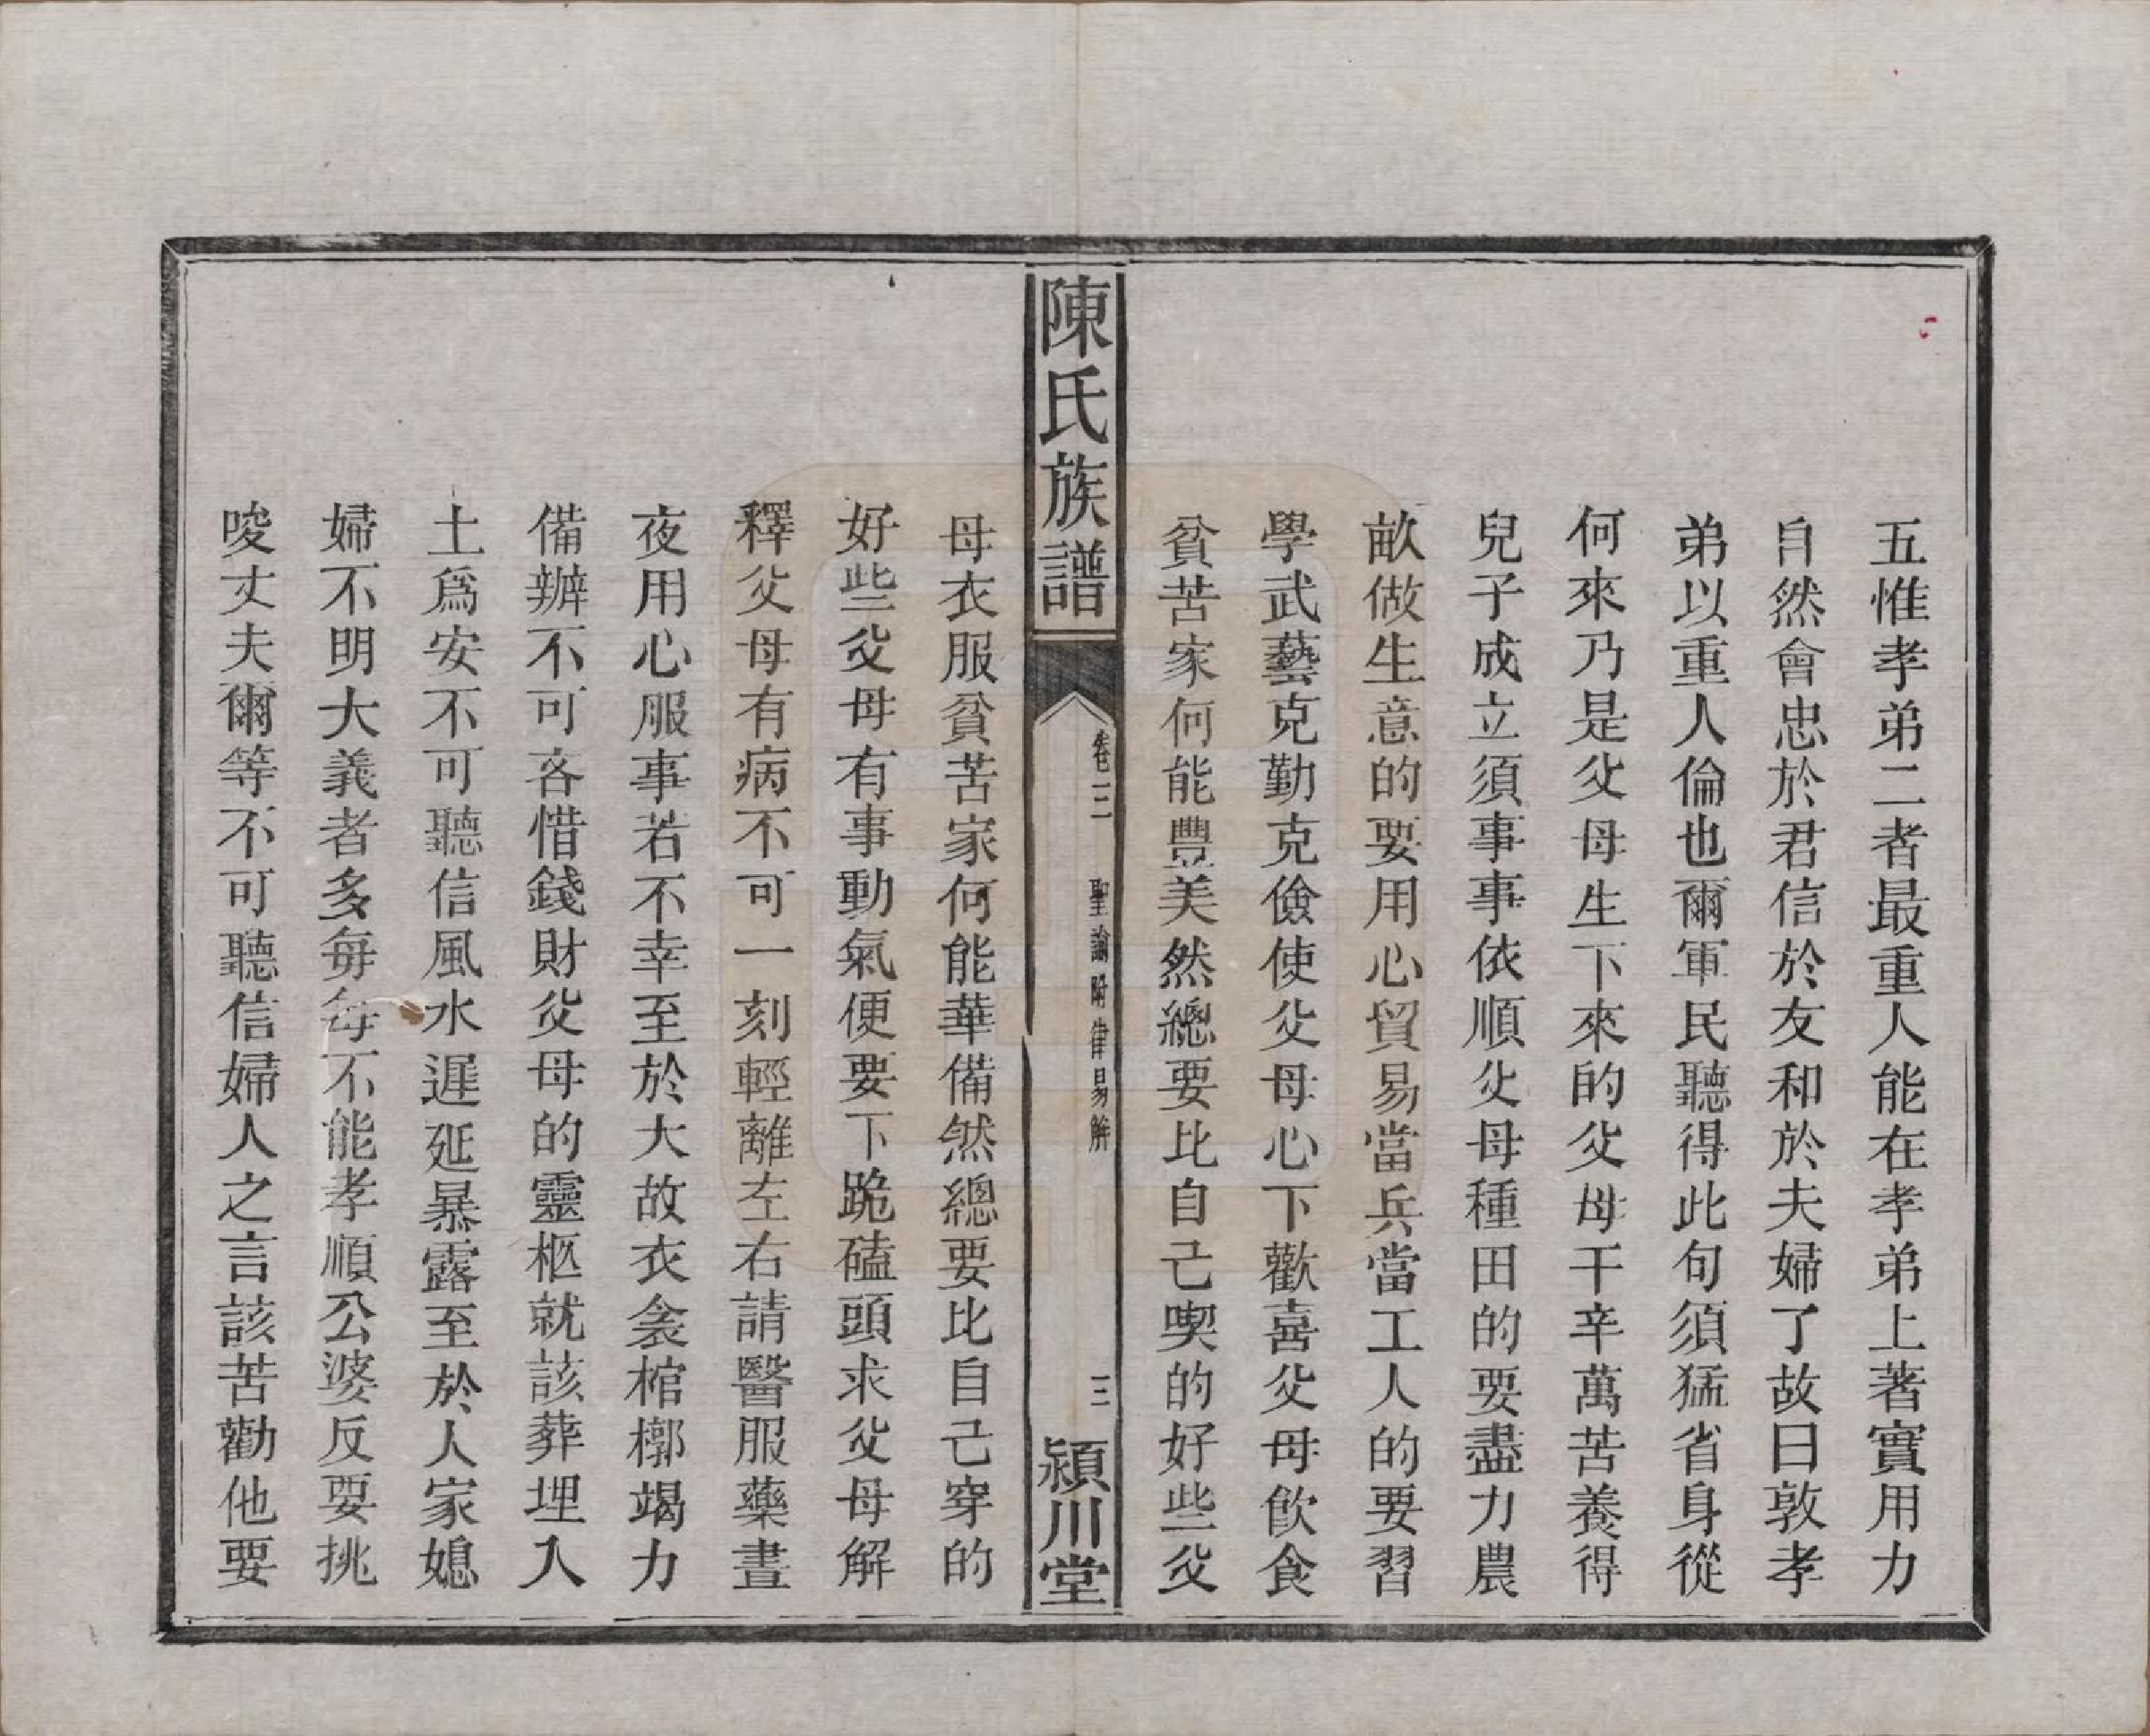 五惟孝弟二者最重人能在孝弟上著實用力
自然會忠於君信於友和於夫婦了故曰敦孝
弟以重人倫也爾軍民聽得此句須猛省身從
何來乃是父母生下來的父母千辛萬苦養得
兒子成立須事事依順父母種田的要盡力農
畝做生意的要用心貿易當兵當工人的要習
學武藝克勤克儉使父母心下歡喜父母飲食
貧苦家何能豐美然總要比自己喫的好些父
陳氏族譜
卷三 聖諭附律易解
三
潁川堂
母衣服貧苦家何能華備然總要比自己穿的
好些父母有事動氣便要下跪磕頭求父母解
釋父母有病不可一刻輕離左右請醫服藥晝
夜用心服事若不幸至於大故衣衾棺槨竭力
備辦不可吝惜錢財父母的靈柩就該葬埋入
土爲安不可聽信風水遲延暴露至於人家媳
婦不明大義者多每每不能孝順公婆反要挑
唆丈夫爾等不可聽信婦人之言該苦勸他要